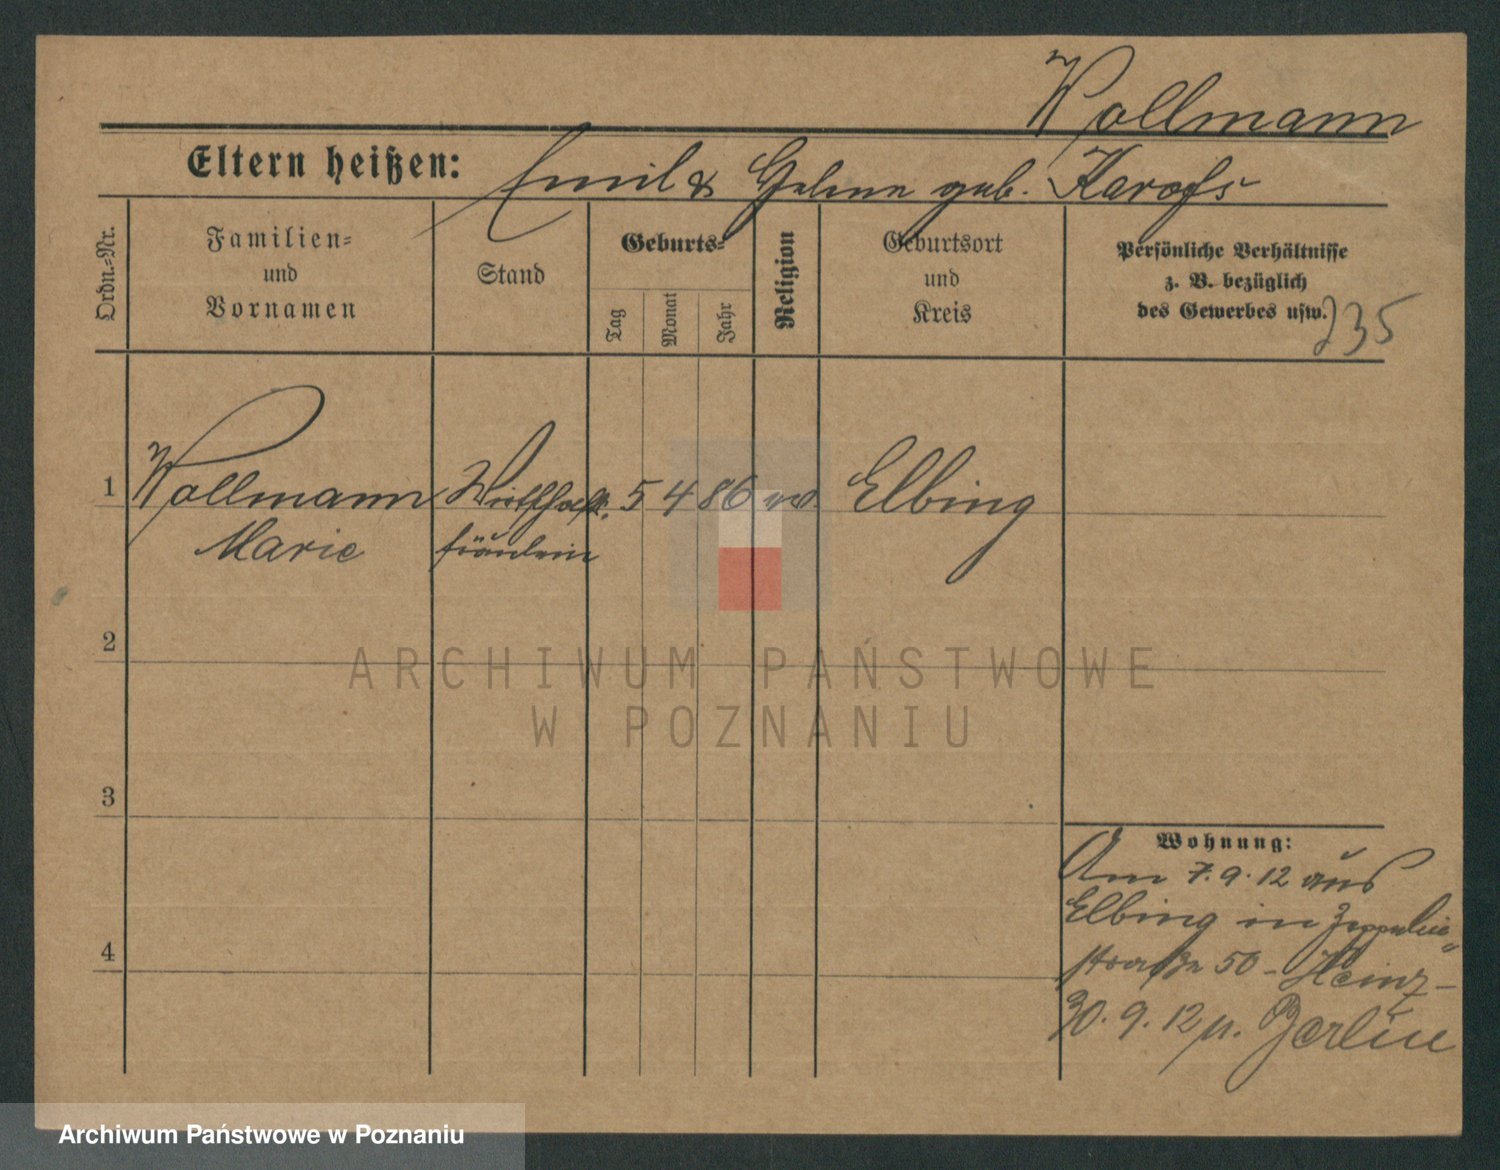 Wollmann
Eltern heißen: Emil & Helene geb.
Ordn.-Nr.
Familien-
und
Vornamen
Stand
Geburts-
Tag
Monat
Jahr
Religion
Geburtsort
und
Kreis
Persönliche Verhältnisse
z. B. bezüglich
des Gewerbes usw.
235
1 Wollmann Wirthschfts. 5 4 86 ev. Elbing
Marie fräulein
2
3
4
Wohnung:
Am 7.9.12 aus
Elbing in Zeppelin-
straße 50 - Heinz -
30.9.12 n. Berlin
ARCHIWUM PAŃSTWOWE
W POZNANIU
Archiwum Państwowe w Poznaniu